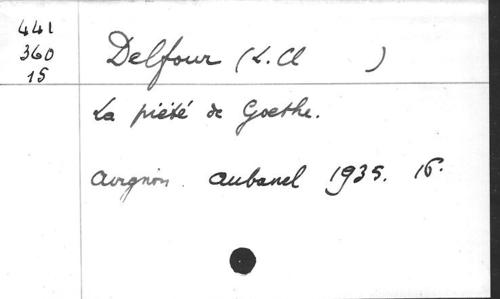 441
360
15
Delfour (L. Cl )
La piété de Goethe.
Avignon. Aubanel 1935. 16.